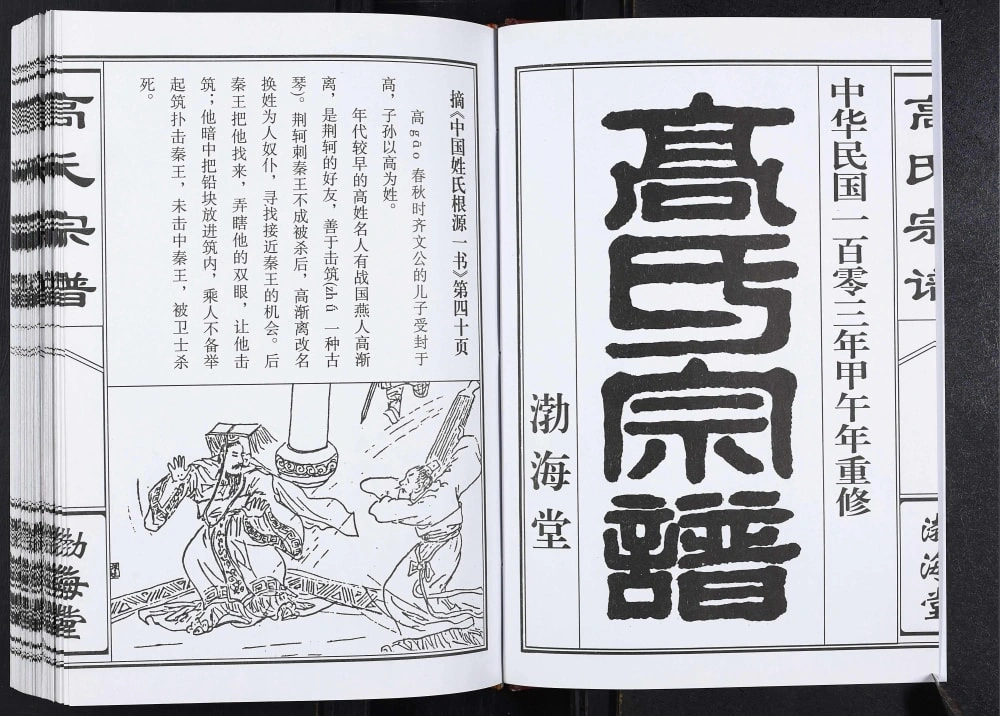 中华民国一百零三年甲午年重修
高氏宗譜
渤海堂
高氏宗谱
渤海堂
摘《中国姓氏根源一书》第四十页
高 gāo 春秋时齐文公的儿子受封于
高，子孙以高为姓。
年代较早的高姓名人有战国燕人高渐
离，是荆轲的好友，善于击筑(zhú 一种古
琴)。荆轲刺秦王不成被杀后，高渐离改名
换姓为人奴仆，寻找接近秦王的机会。后
秦王把他找来，弄瞎他的双眼，让他击
筑；他暗中把铅块放进筑内，乘人不备举
起筑扑击秦王，未击中秦王，被卫士杀
死。
高氏宗谱
渤海堂